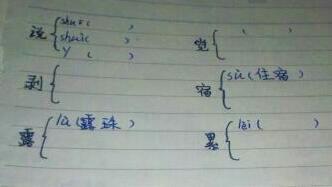 说 { shuō (      )
shuì (      )
y (      )
宽 { (      )
剥 {
宿 { sù (住宿)
露 { lù (露珠)
累 { lèi (      )